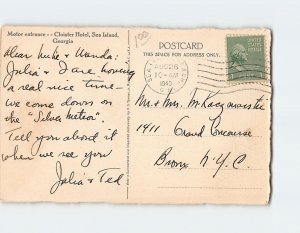 Motor entrance - - Cloister Hotel, Sea Island,
Georgia
100
Dear Mike & Wanda:
Julia & I are having
a real nice time -
we came down on
the "Silver Meteor".
Tell you about it
when we see you
Julia & Ted
POSTCARD
THIS SPACE FOR ADDRESS ONLY.
AUG 26
10 - AM
1940
Mr & Mrs. M.
1911 Grand Concourse
Bronx N.Y.C.